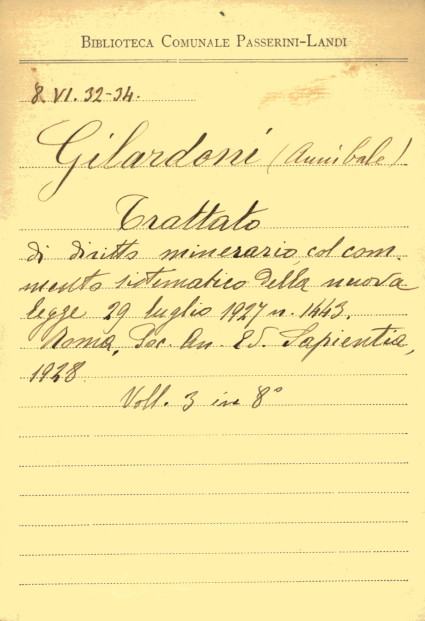 BIBLIOTECA COMUNALE PASSERINI-LANDI
8. VI. 32-34.
Gilardoni (Annibale)
Trattato
di diritto minerario, col com-
mento sistematico della nuova
legge 29 luglio 1927 n. 1443.
Roma, Soc. An. Ed. Sapientia,
1928
Voll. 3 in 8°